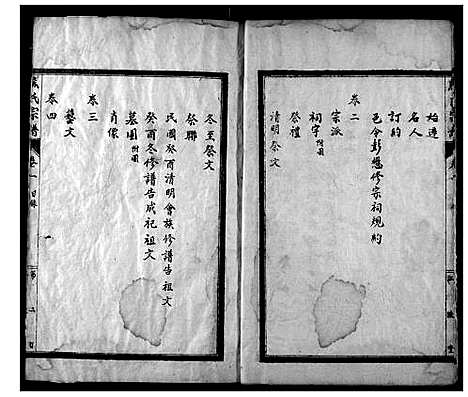 始遷
名人
訂約
邑令彭懋修宗祠規約
卷二
宗派
祠宇附圖
祭禮
清明祭文
冬至祭文
祭聯
民國癸酉清明會族修譜告祖文
癸酉冬修譜告成祀祖文
墓圖附圖
肖像
卷三
藝文
卷四
氏宗譜
卷一
目錄